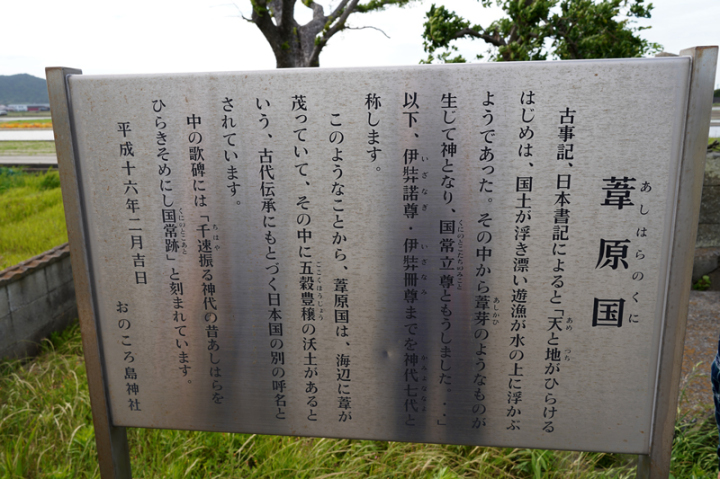 葦原国
あしはらのくに
古事記、日本書記によると「天と地がひらける
はじめは、国土が浮き漂い遊漁が水の上に浮かぶ
ようであった。その中から葦芽のようなものが
生じて神となり、国常立尊ともうしました。・・」
以下、伊弉諾尊・伊弉冊尊までを神代七代と
称します。
このようなことから、葦原国は、海辺に葦が
茂っていて、その中に五穀豊穣の沃土があると
いう、古代伝承にもとづく日本国の別の呼名と
されています。
中の歌碑には「千速振る神代の昔あしはらを
ひらきそめにし国常跡」と刻まれています。
平成十六年二月吉日　おのころ島神社